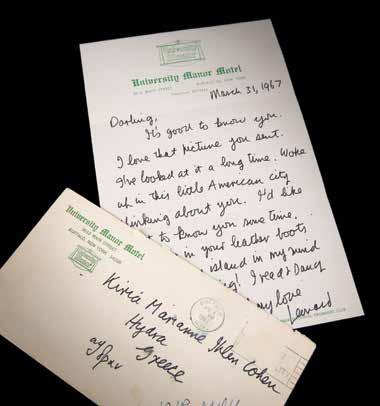 University Manor Motel
March 31, 1967
Darling,
It's good to know you.
I love that picture you sent.
I've looked at it a long time. Woke
up in this little American city
thinking about you. I'd like
to know you some time.
in your leather boots
island in my mind
! I read & Danced
my love
Leonard
University Manor Motel
3612 MAIN STREET
BUFFALO, NEW YORK
Kiria Marianne Ihlen Cohen
Hydra
Greece